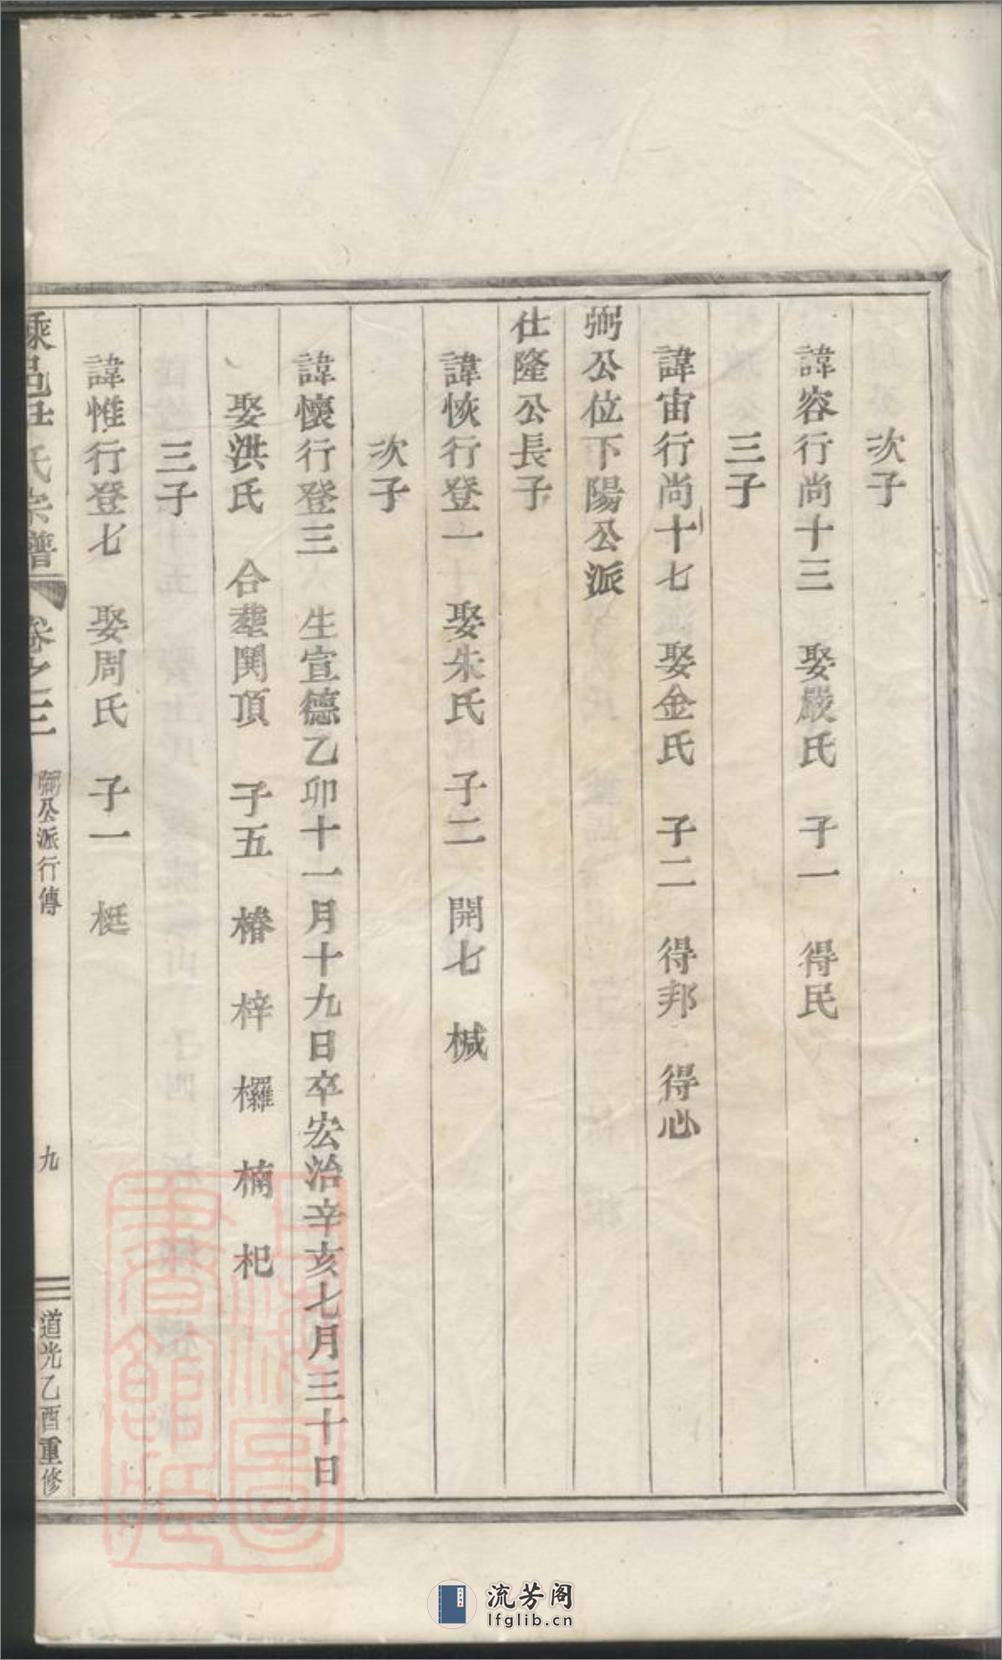 次子
諱容行尚十三　娶嚴氏　子一　得民
三子
諱宙行尚十七　娶金氏　子二　得邦　得心
弼公位下陽公派
仕隆公長子
諱恢行登一　娶朱氏　子二　開七　椷
次子
諱懷行登三　生宣德乙卯十一月十九日卒宏治辛亥七月三十日
娶洪氏　合塟関頂　子五　椿　梓　欏　楠　杞
三子
諱惟行登七　娶周氏　子一　梃
乘邑 氏宗譜　卷之三　弼公派行傳　九　道光乙酉重修
上海圖書館藏
流芳阁
lfglib.cn